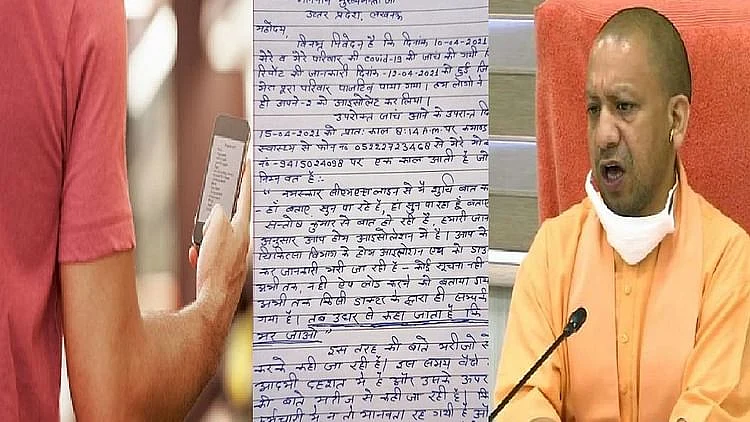 माननीय मुख्यमंत्री जी
उत्तर प्रदेश, लखनऊ
महोदय,
विनम्र निवेदन है कि दिनांक 10-04-2021
मेरे व मेरे परिवार की Covid-19 की जांच की गयी
रिपोर्ट की जानकारी दिनांक -12-04-2021 को हुई
मेरा पूरा परिवार पाजटिव पाया गया। हम लोगो ने
ही अपने-2 को आइसोलेट कर लिया।
उपरोक्त जांच आने के उपरान्त दि
15-04-2021 को प्रातः काल 8:14 A.m. पर कमाण्ड
स्वास्थ्य से फोन नं 05222723468 से मेरे मो
नं -9415024098 पर एक काल आती है जो
निम्नवत है:-
" नमस्कार सीएमहेल्पलाइन से मैं शुचि बात कर
- हाँ बताए सुन पा रहे हैं, हाँ सुन पा रहा हूँ, बताए
सन्तोष कुमार से बात हो रही है, हमारी जान
अनुसार आप होम आइसोलेशन में है। आप के
चिकित्सा विभाग के होम आइसोलेशन एप को डाउ
कर जानकारी भरी जा रही है - कोई सूचना नहीं
अभी तक, नहीं ऐप लोड करने को बताया गया
अभी तक किसी डाक्टर के द्वारा ही सम्पर्क
गया है। तब उधर से कहा जाता है कि
मर जाओ "
इस तरह की बाते मरीजो से
करके कही जा रही हैं। इस समय वैसे
आदमी दहशत में है और उसके ऊपर
की बाते मरीज से कही जा रही है। कि
कर्मचारी में न तो मानवता रह गयी है औ